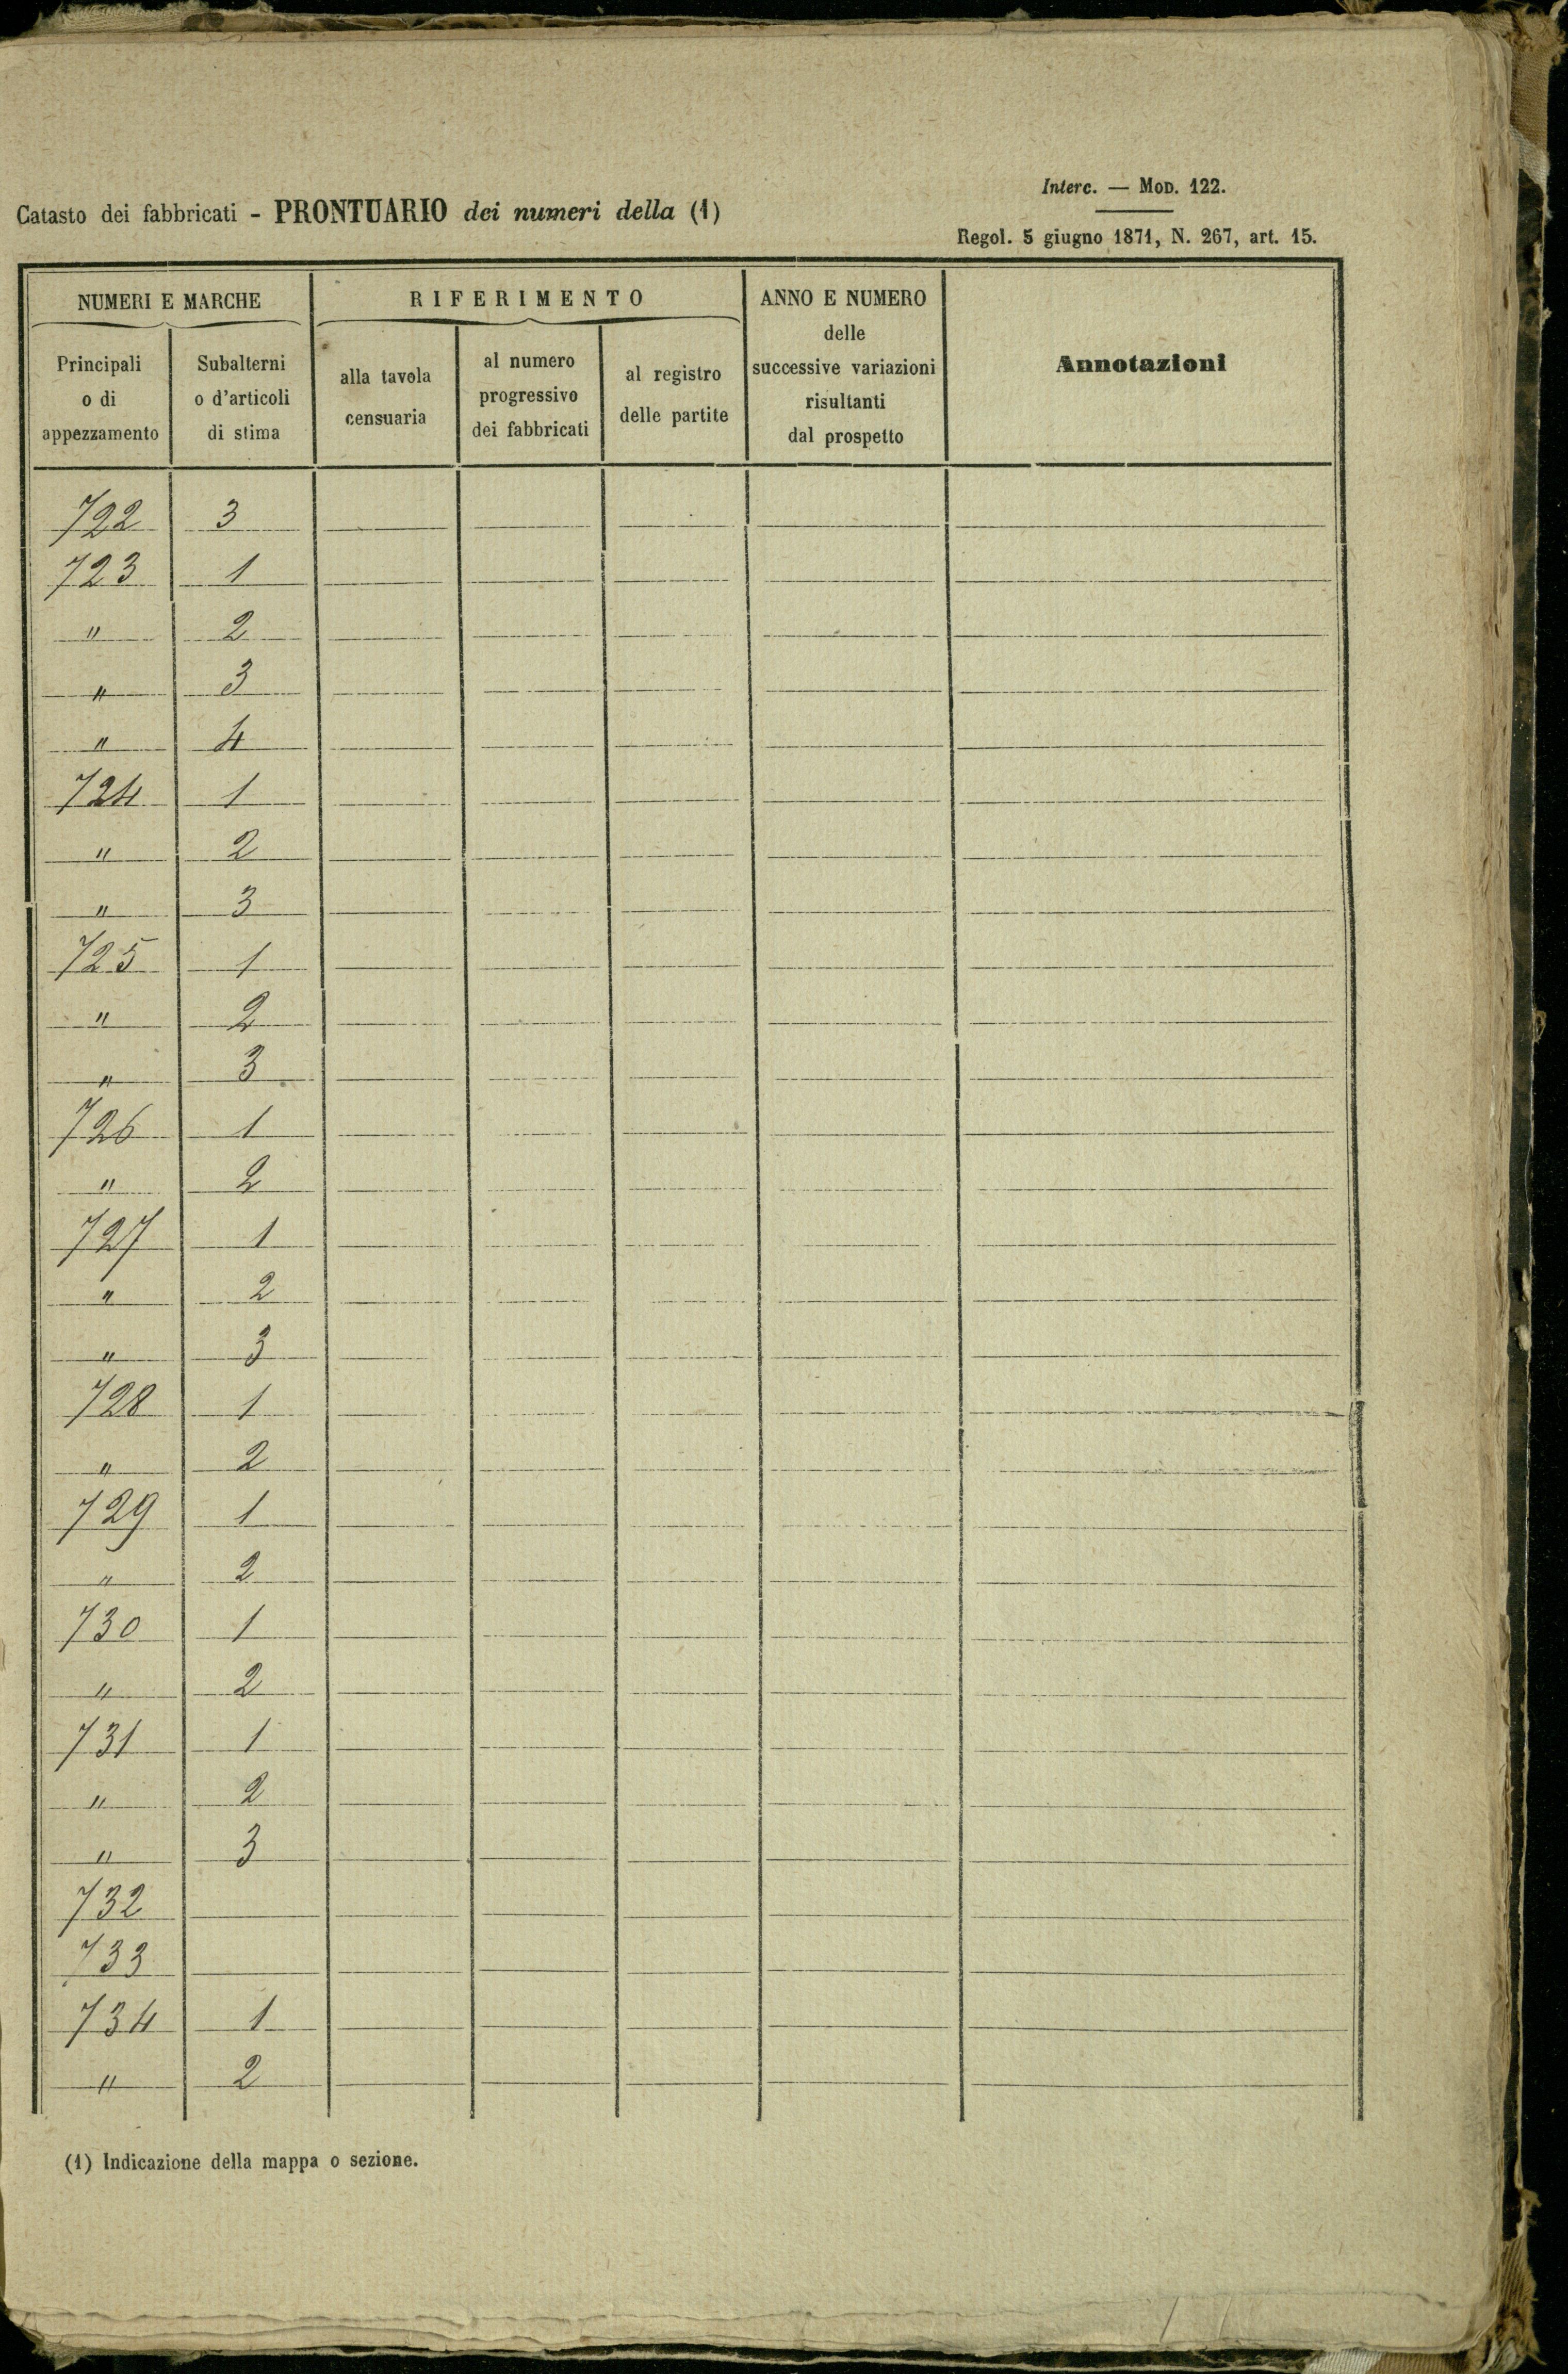 Interc. — Mod. 122.
Catasto dei fabbricati - PRONTUARIO dei numeri della (1)
Regol. 5 giugno 1871, N. 267, art. 15.
NUMERI E MARCHE
Principali
o di
appezzamento
Subalterni
o d'articoli
di stima
RIFERIMENTO
alla tavola
censuaria
al numero
progressivo
dei fabbricati
al registro
delle partite
ANNO E NUMERO
delle
successive variazioni
risultanti
dal prospetto
Annotazioni
722 3
723 1
" 2
" 3
" 4
724 1
" 2
" 3
725 1
" 2
" 3
726 1
" 2
727 1
" 2
" 3
728 1
" 2
729 1
" 2
730 1
" 2
731 1
" 2
" 3
732
733
734 1
" 2
(1) Indicazione della mappa o sezione.